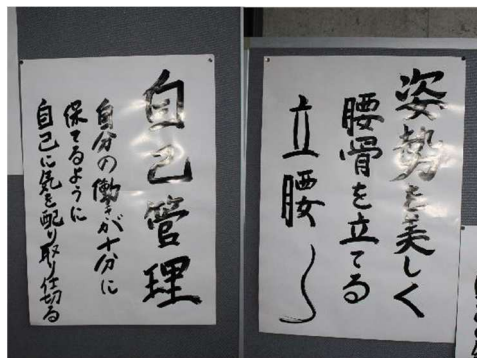 自己管理
自分の働きが十分に
保てるように
自己に気を配り取り仕切る
姿勢を美しく
腰骨を立てる
立腰